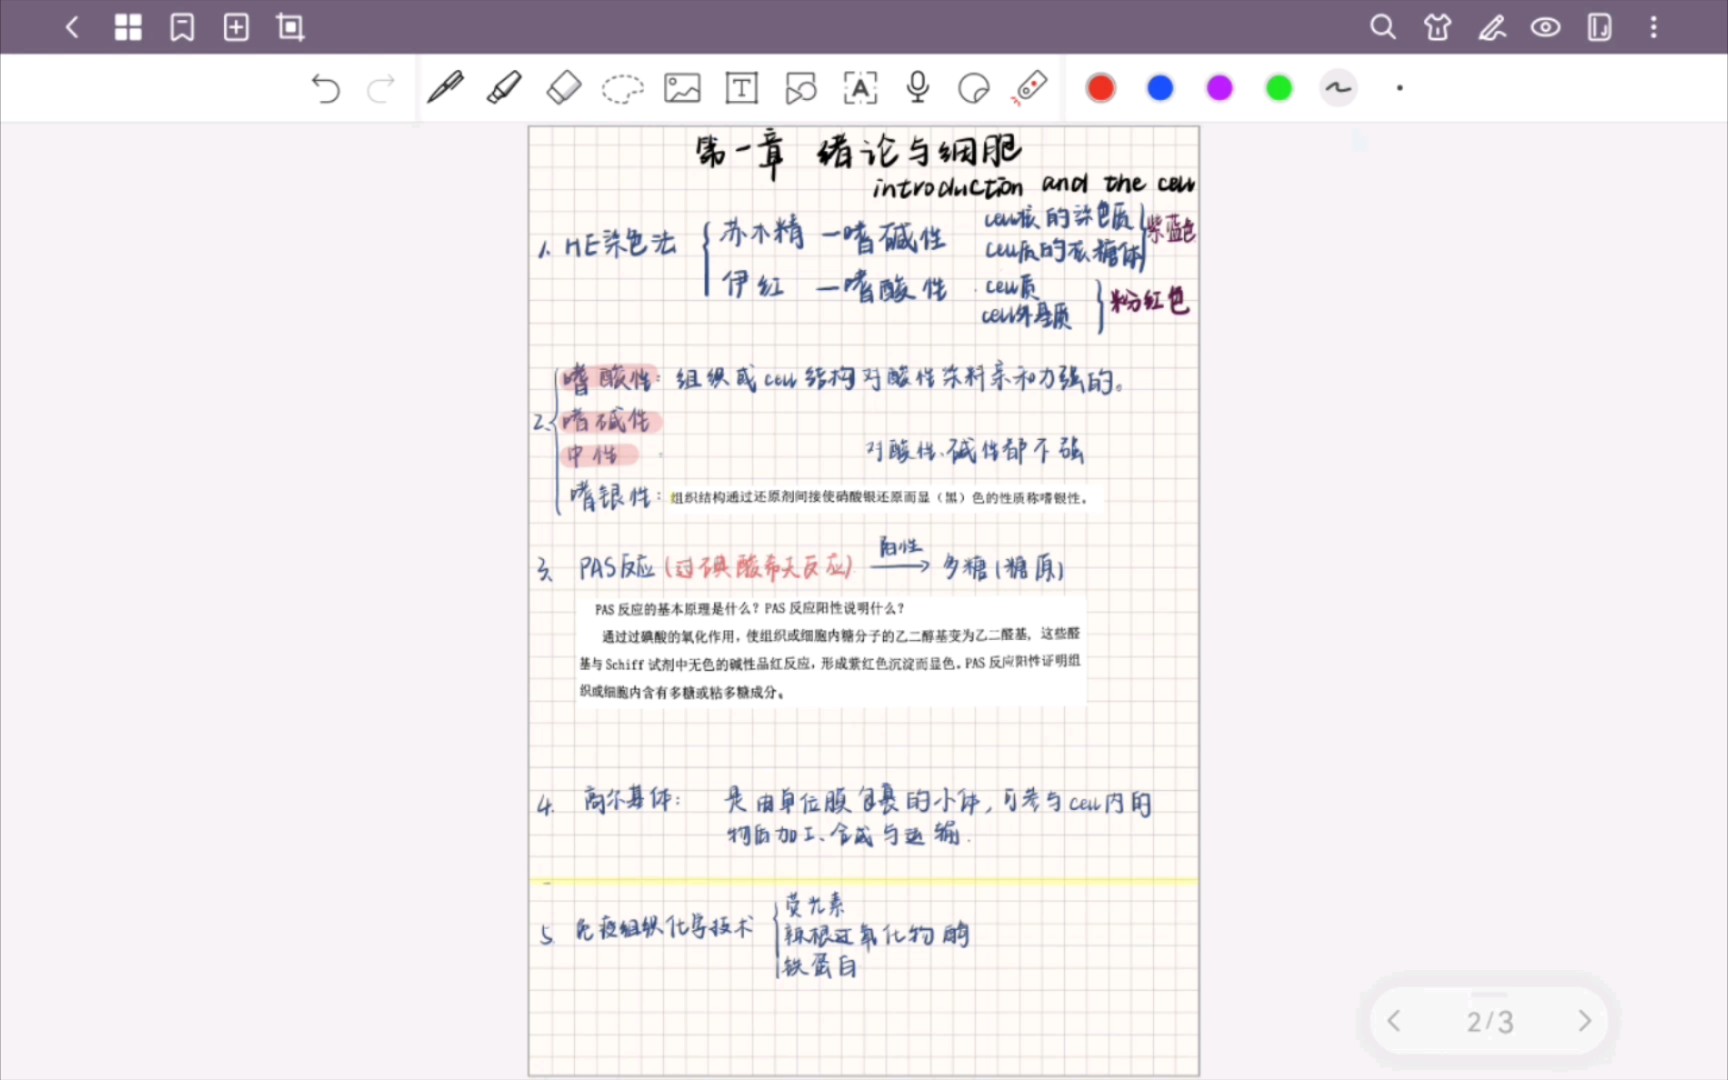 第一章 绪论与细胞
introduction and the cell
1. HE染色法 苏木精 — 嗜碱性 cell核的染色质 cell质的核糖体 紫蓝色
伊红 — 嗜酸性 cell质 cell外基质 粉红色
2. 嗜酸性: 组织或cell结构对酸性染料亲和力强的。
嗜碱性
中性 对酸性、碱性都不强
嗜银性: 组织结构通过还原剂间接使硝酸银还原而显（黑）色的性质称嗜银性。
3. PAS反应(过碘酸希夫反应) 阳性 → 多糖(糖原)
PAS 反应的基本原理是什么？PAS 反应阳性说明什么？
通过过碘酸的氧化作用，使组织或细胞内糖分子的乙二醇基变为乙二醛基，这些醛
基与 Schiff 试剂中无色的碱性品红反应，形成紫红色沉淀而显色。PAS 反应阳性证明组
织或细胞内含有多糖或粘多糖成分。
4. 高尔基体: 是由单位膜包裹的小体, 可参与cell内的
物质加工、合成与运输.
5. 免疫组织化学技术 荧光素
辣根过氧化物酶
铁蛋白
2/3